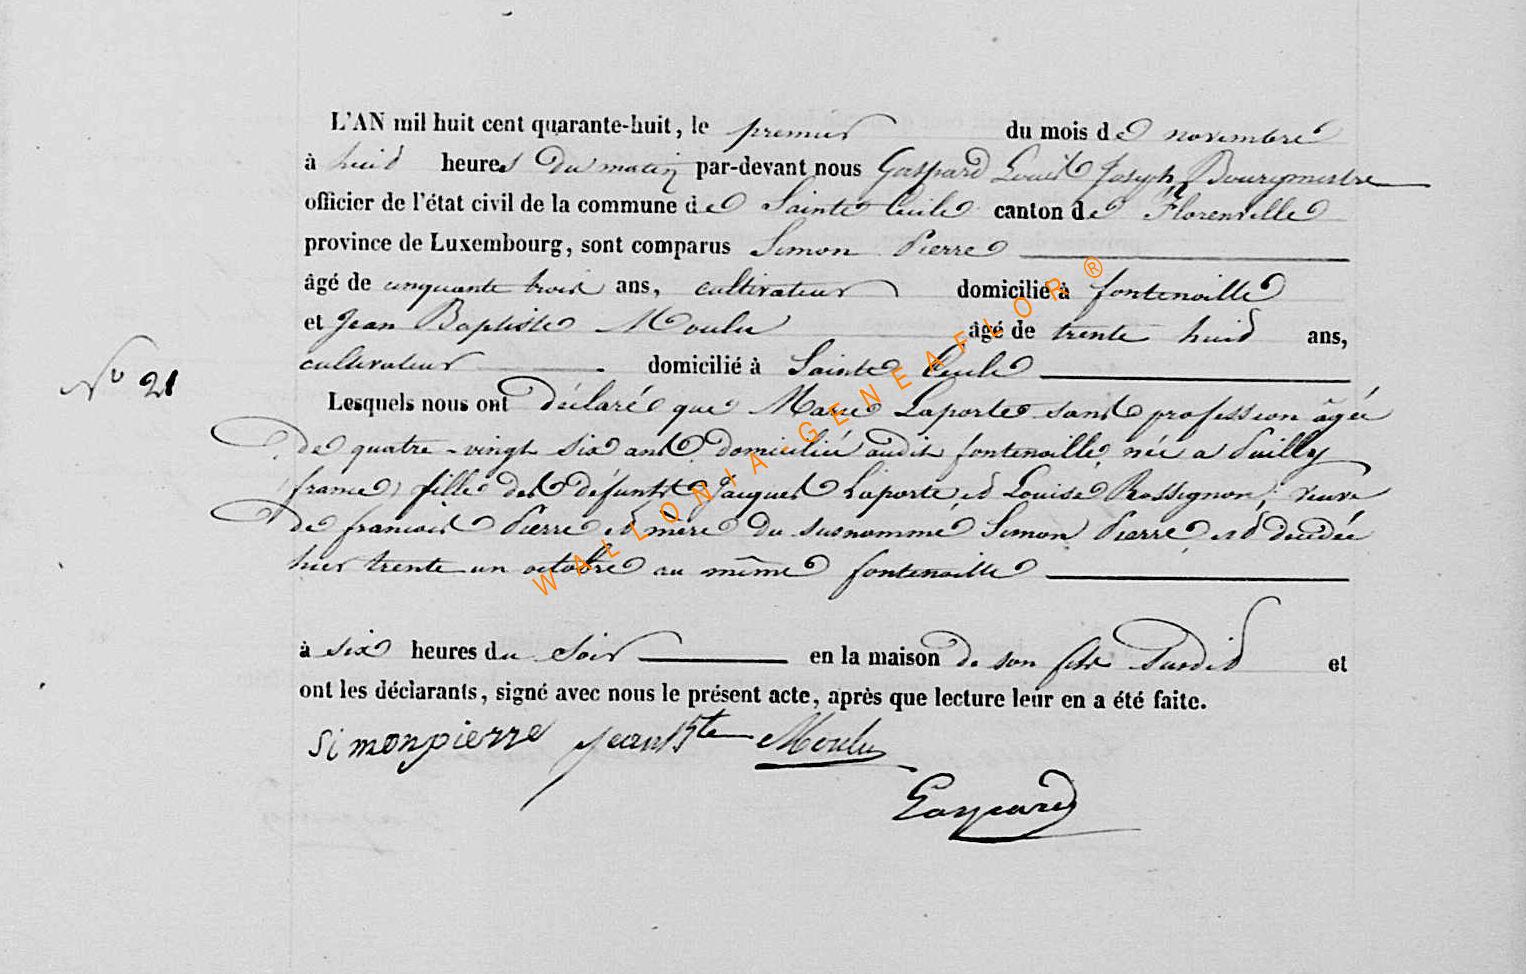 L'AN mil huit cent quarante-huit, le premier du mois de novembre
à huid heures du matin par-devant nous Gaspard Louis Joseph Bourgmestre
officier de l'état civil de la commune de Sainte Cecile canton de Florenville
province de Luxembourg, sont comparus Simon Pierre
âgé de cinquante trois ans, cultivateur domicilié à fontenoille
et Jean Baptiste Moulu âgé de trente huid ans,
cultivateur domicilié à Sainte Cecile
N° 21
Lesquels nous ont déclaré que Marie Laporte sans profession âgée
de quatre-vingt six ans domiciliée audit fontenoille, née a Puilly
(france) fille des défunts Jacques Laporte et Louise Rossignon, veuve
de francois Pierre et mère du susnommé Simon Pierre, est decedée
hier trente un octobre au même fontenoille
à six heures du soir en la maison de son fils susdit et
ont les déclarants, signé avec nous le présent acte, après que lecture leur en a été faite.
Simonpierre Jean Bte Moulu
Gaspard
WALLONIA-GENEAFLOR ®